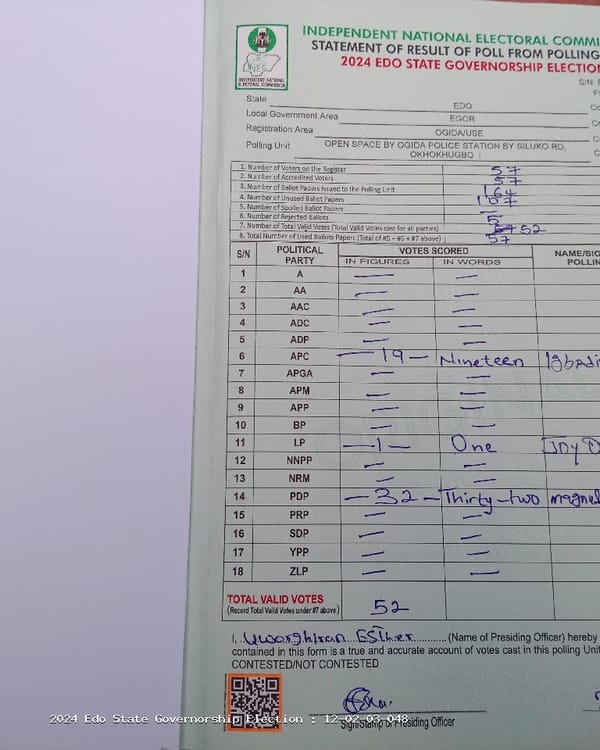 INDEPENDENT NATIONAL ELECTORAL COMMI
STATEMENT OF RESULT OF POLL FROM POLLING
2024 EDO STATE GOVERNORSHIP ELECTION
S/N:
INEC
INDEPENDENT NATIONAL
ELECTORAL COMMISSION
State EDO Co
Local Government Area EGOR Co
Registration Area OGIDA/USE C
Polling Unit OPEN SPACE BY OGIDA POLICE STATION BY SILUKO RD, C
OKHOKHUGBO I
1. Number of Voters on the Register 57
2. Number of Accredited Voters 57
3. Number of Ballot Papers Issued to the Polling Unit 164
4. Number of Unused Ballot Papers 107
5. Number of Spoiled Ballot Papers —
6. Number of Rejected Ballots 5
7. Number of Total Valid Votes (Total Valid Votes cast for all parties) 52
8. Total Number of Used Ballots Papers (Total of #5 + #6 + #7 above) 57
S/N POLITICAL PARTY VOTES SCORED NAME/SIG
IN FIGURES IN WORDS POLLIN
1 A — —
2 AA — —
3 AAC — —
4 ADC — —
5 ADP — —
6 APC —19— Nineteen
7 APGA — —
8 APM — —
9 APP — —
10 BP — —
11 LP —1— One Joy
12 NNPP — —
13 NRM — —
14 PDP —32— Thirty-two
15 PRP — —
16 SDP — —
17 YPP — —
18 ZLP — —
TOTAL VALID VOTES
(Record Total Valid Votes under #7 above) 52
I, Esther (Name of Presiding Officer) hereby
contained in this form is a true and accurate account of votes cast in this polling Unit
CONTESTED/NOT CONTESTED
Sign/Stamp of Presiding Officer
2024 Edo State Governorship Election : 12-02-03-048